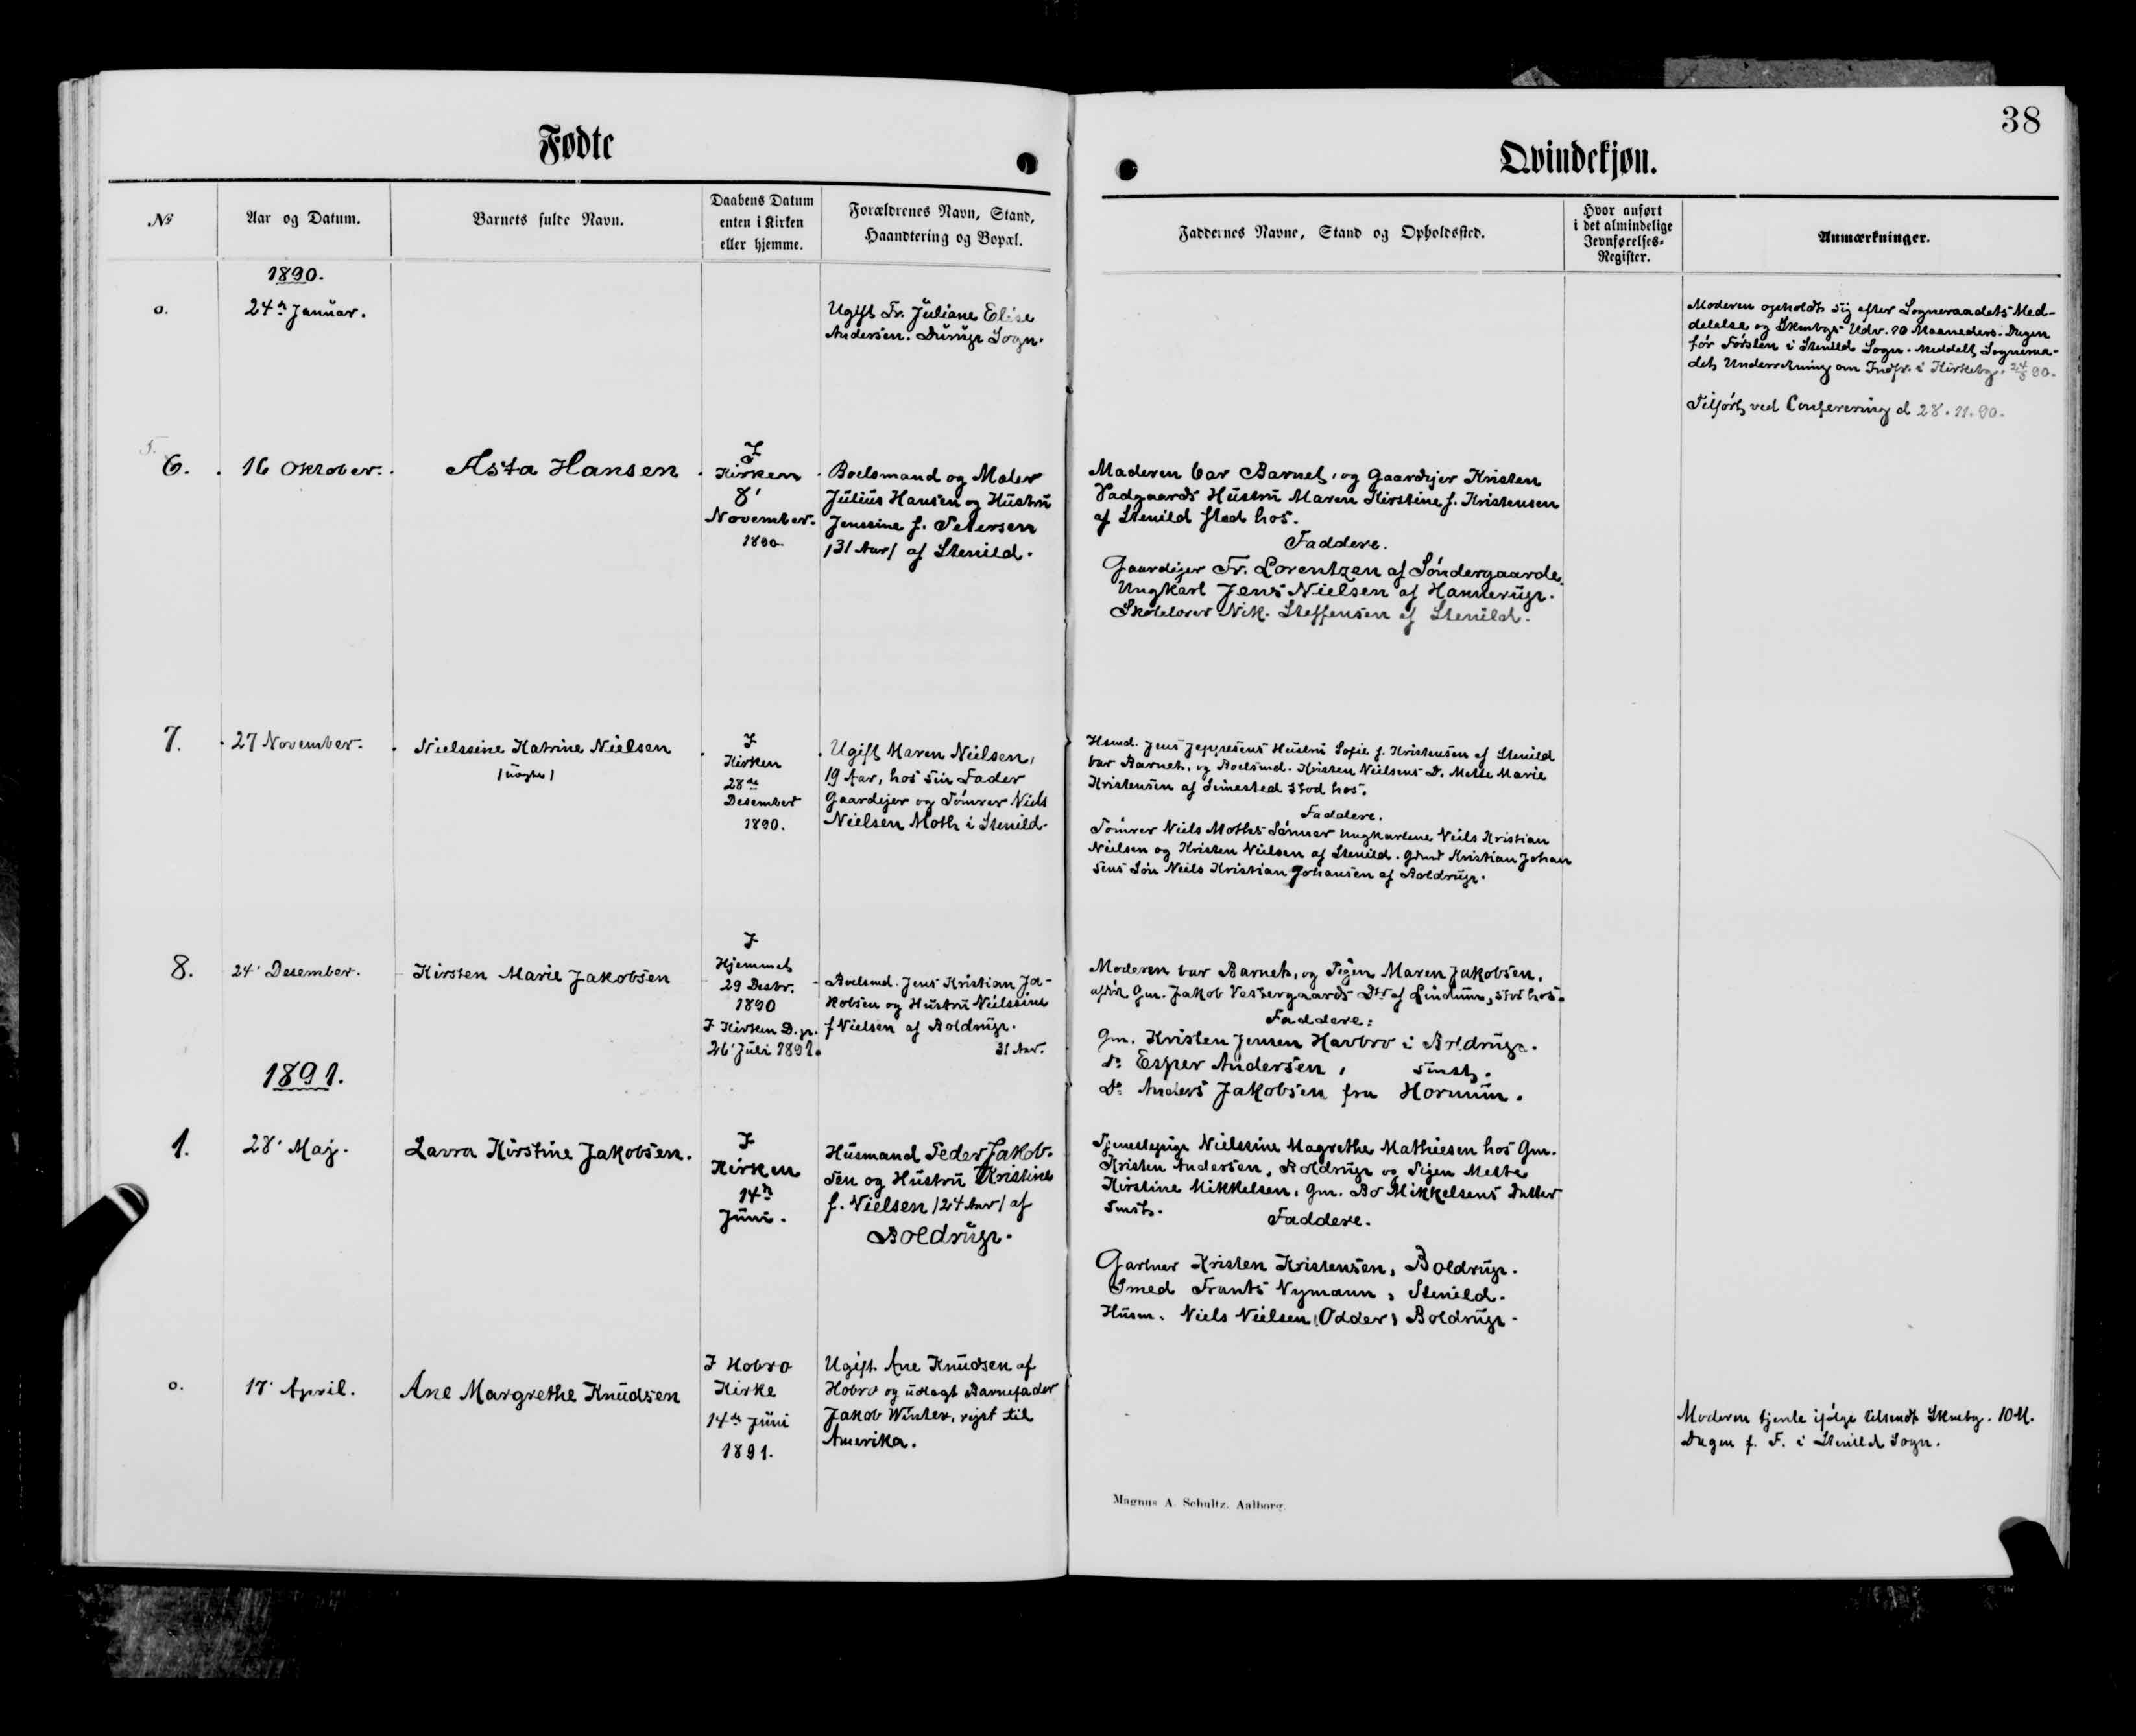 38
Fødte
Qvindekjøn.
№
Aar og Datum.
Barnets fulde Navn.
Daabens Datum
enten i Kirken
eller hjemme.
Forældrenes Navn, Stand,
Haandtering og Bopæl.
Faddernes Navne, Stand og Opholdssted.
Hvor anført
i det almindelige
Jevnførelses-
Register.
Anmærkninger.
1890.
o.
24de Januar.
Ugift Fr. Juliane Elise
Andersen. Durup Sogn.
Moderen opholdt sig efter Sogneraadets Med-
delelse og Skmbgs Udv. 10 Maaneders-Dagen
før Fødslen i Stenild Sogn. Meddelt Sognera-
det Underretning om Indf. i Kirkebg. 24/5 90.
Tilført ved Conferering d 28.11.90.
5.
6.
16 Oktober.
Asta Hansen
I
Kirken
8'
November.
1890.
Boelsmand og Maler
Julius Hansen og Hustru
Jenssine f. Petersen
/31 Aar/ af Stenild.
Moderen bar Barnet, og Gaardejer Kristen
Vadgaards Hustru Maren Kirstine f. Kristensen
af Stenild stod hos.
Faddere.
Gaardejer Fr. Lorentzen af Søndergaarde.
Ungkarl Jens Nielsen af Hannerup.
Skolelærer Nik. Steffensen af Stenild.
7.
27 November.
Nielssine Katrine Nielsen
/uægte/
I
Kirken
28de
Desember
1890.
Ugift Maren Nielsen,
19 Aar, hos sin Fader
Gaardejer og Tømrer Niels
Nielsen Moth i Stenild.
Hsmd. Jens Jeppesens Hustru Sofie f. Kristensen af Stenild
bar Barnet, og Boelsmd. Kristen Nielsens D. Mette Marie
Kristensen af Simested stod hos.
Faddere.
Tømrer Niels Moths Sønner Ungkarlene Niels Kristian
Nielsen og Kristen Nielsen af Stenild. Gdmd Kristian Johan
sens Søn Niels Kristian Johansen af Boldrup.
8.
24' Desember.
Kirsten Marie Jakobsen
I
Hjemmet
29 Desbr.
1890
I Kirken D. p.
26' Juli 1891.
Boelsmd. Jens Kristian Ja-
kobsen og Hustru Nielssine
f Nielsen af Boldrup.
31 Aar.
Moderen bar Barnet, og Pigen Maren Jakobsen,
afdøde Gm. Jakob Vestergaards Dtr af Lindum, stod hos.
Faddere:
Gm. Kristen Jensen Havbro i Boldrup.
Do Esper Andersen, smsts.
Do Anders Jakobsen fra Hornum.
1891.
1.
28' Maj.
Laura Kirstine Jakobsen.
I
Kirken
14de
Juni.
Husmand Peder Jakob-
sen og Hustru Kristine
f. Nielsen /24 Aar/ af
Boldrup.
Tjenestepige Nielssine Magrethe Mathiesen hos Gm.
Kristen Andersen, Boldrup og Pigen Mette
Kirstine Mikkelsen, Gm. Bo Mikkelsens Datter
Smsts.
Faddere.
Gartner Kristen Kristensen, Boldrup.
Smed Frants Nymann, Stenild.
Husm. Niels Nielsen (Odder) Boldrup.
o.
17' April.
Ane Margrethe Knudsen
I Hobro
Kirke
14de Juni
1891.
Ugift Ane Knudsen af
Hobro og udlagt Barnefader
Jakob Winter, rejst til
Amerika.
Moderen tjente ifølge tilsendt Skmbg. 10 M.
Dagen f. F. i Stenild Sogn.
Magnus A. Schultz. Aalborg.